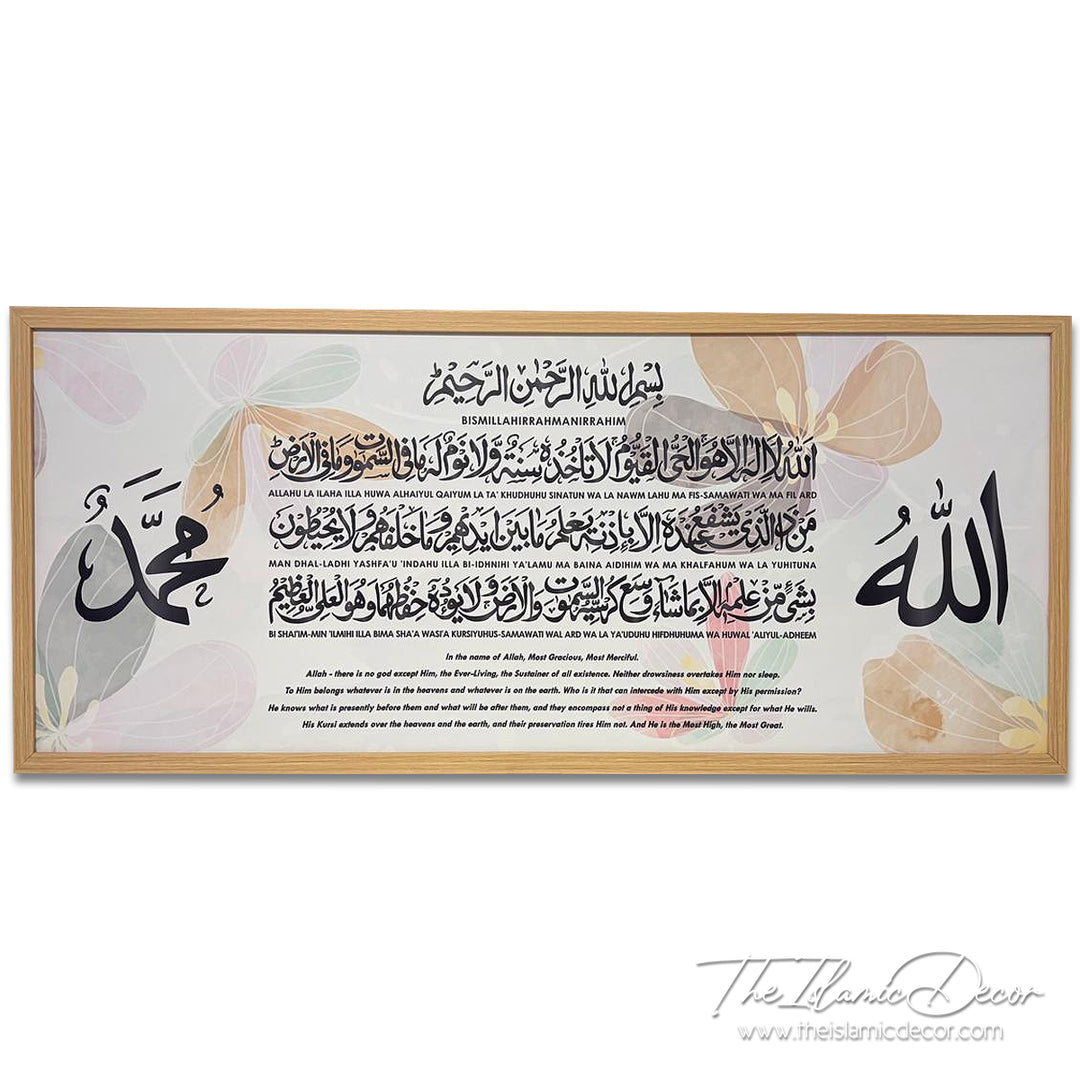 بِسْمِ اللهِ الرَّحْمٰنِ الرَّحِيْمِ
BISMILLAHIRRAHMANIRRAHIM
اَللهُ لَا اِلٰهَ اِلَّا هُوَ الْحَيُّ الْقَيُّوْمُ لَا تَاْخُذُهٗ سِنَةٌ وَّلَا نَوْمٌ لَهٗ مَا فِي السَّمٰوٰتِ وَمَا فِي الْاَرْضِ
ALLAHU LA ILAHA ILLA HUWA ALHAIYUL QAIYUM LA TA' KHUDHUHU SINATUN WA LA NAWM LAHU MA FIS-SAMAWATI WA MA FIL ARD
مَنْ ذَا الَّذِيْ يَشْفَعُ عِنْدَهٗ اِلَّا بِاِذْنِهٖ يَعْلَمُ مَا بَيْنَ اَيْدِيْهِمْ وَمَا خَلْفَهُمْ وَلَا يُحِيْطُوْنَ
MAN DHAL-LADHI YASHFA'U 'INDAHU ILLA BI-IDHNIHI YA'LAMU MA BAINA AIDIHIM WA MA KHALFAHUM WA LA YUHITUNA
بِشَيْءٍ مِّنْ عِلْمِهٖ اِلَّا بِمَا شَاءَ وَسِعَ كُرْسِيُّهُ السَّمٰوٰتِ وَالْاَرْضَ وَلَا يَـُٔوْدُهٗ حِفْظُهُمَا وَهُوَ الْعَلِيُّ الْعَظِيْمُ
BI SHAI'IM-MIN 'ILMIHI ILLA BIMA SHA'A WASI'A KURSIYUHUS-SAMAWATI WAL ARD WA LA YA'UDUHU HIFDHUHUMA WA HUWAL 'ALIYUL-ADHEEM
In the name of Allah, Most Gracious, Most Merciful.
Allah - there is no god except Him, the Ever-Living, the Sustainer of all existence. Neither drowsiness overtakes Him nor sleep.
To Him belongs whatever is in the heavens and whatever is on the earth. Who is it that can intercede with Him except by His permission?
He knows what is presently before them and what will be after them, and they encompass not a thing of His knowledge except for what He wills.
His Kursi extends over the heavens and the earth, and their preservation tires Him not. And He is the Most High, the Most Great.
اللهُ
مُحَمَّدٌ
The Islamic Decor
www.theislamicdecor.com